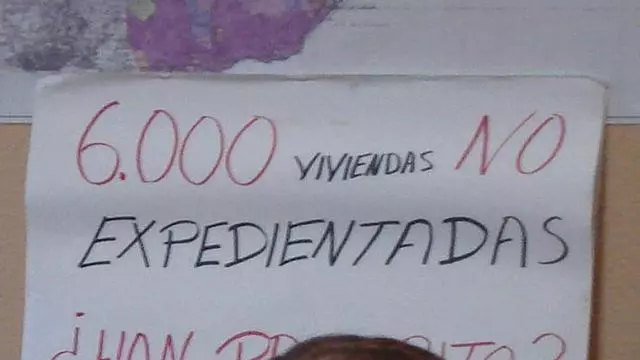 6.000 VIVIENDAS NO
EXPEDIENTADAS
¿HAN